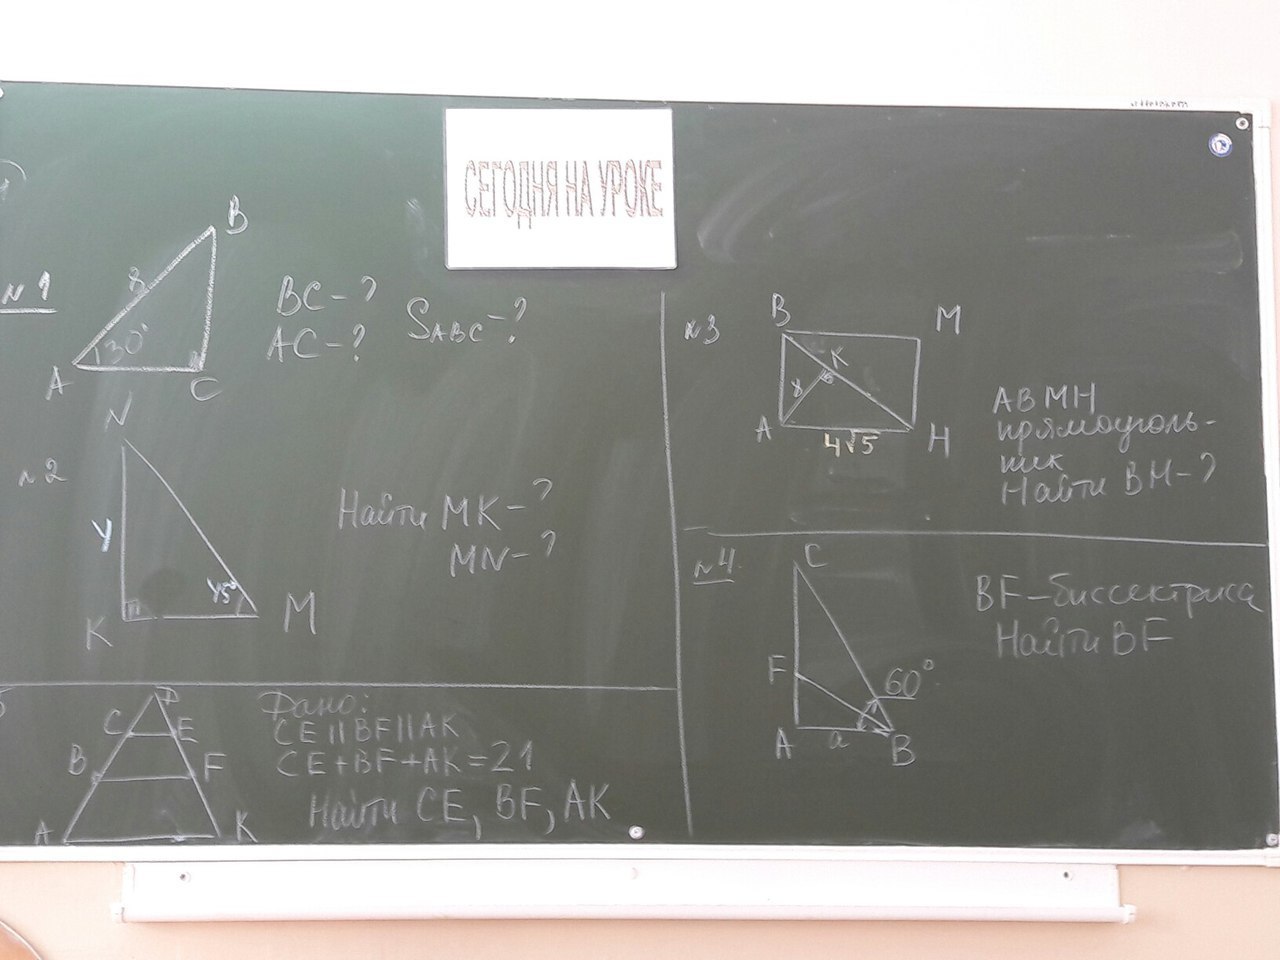 СЕГОДНЯ НА УРОКЕ
№1
B
8
30°
A
C
BC-?
AC-?
S ABC-?
№2
N
y
45°
K
M
Найти MK-?
MN-?
C
E
B
F
A
K
Дано:
CE||BF||AK
CE+BF+AK=21
Найти CE, BF, AK
№3
B
M
K
8
A
H
4√5
ABMH
прямоуголь-
ник
Найти BH-?
№4
C
F
60°
A
a
B
BF-биссектриса
Найти BF